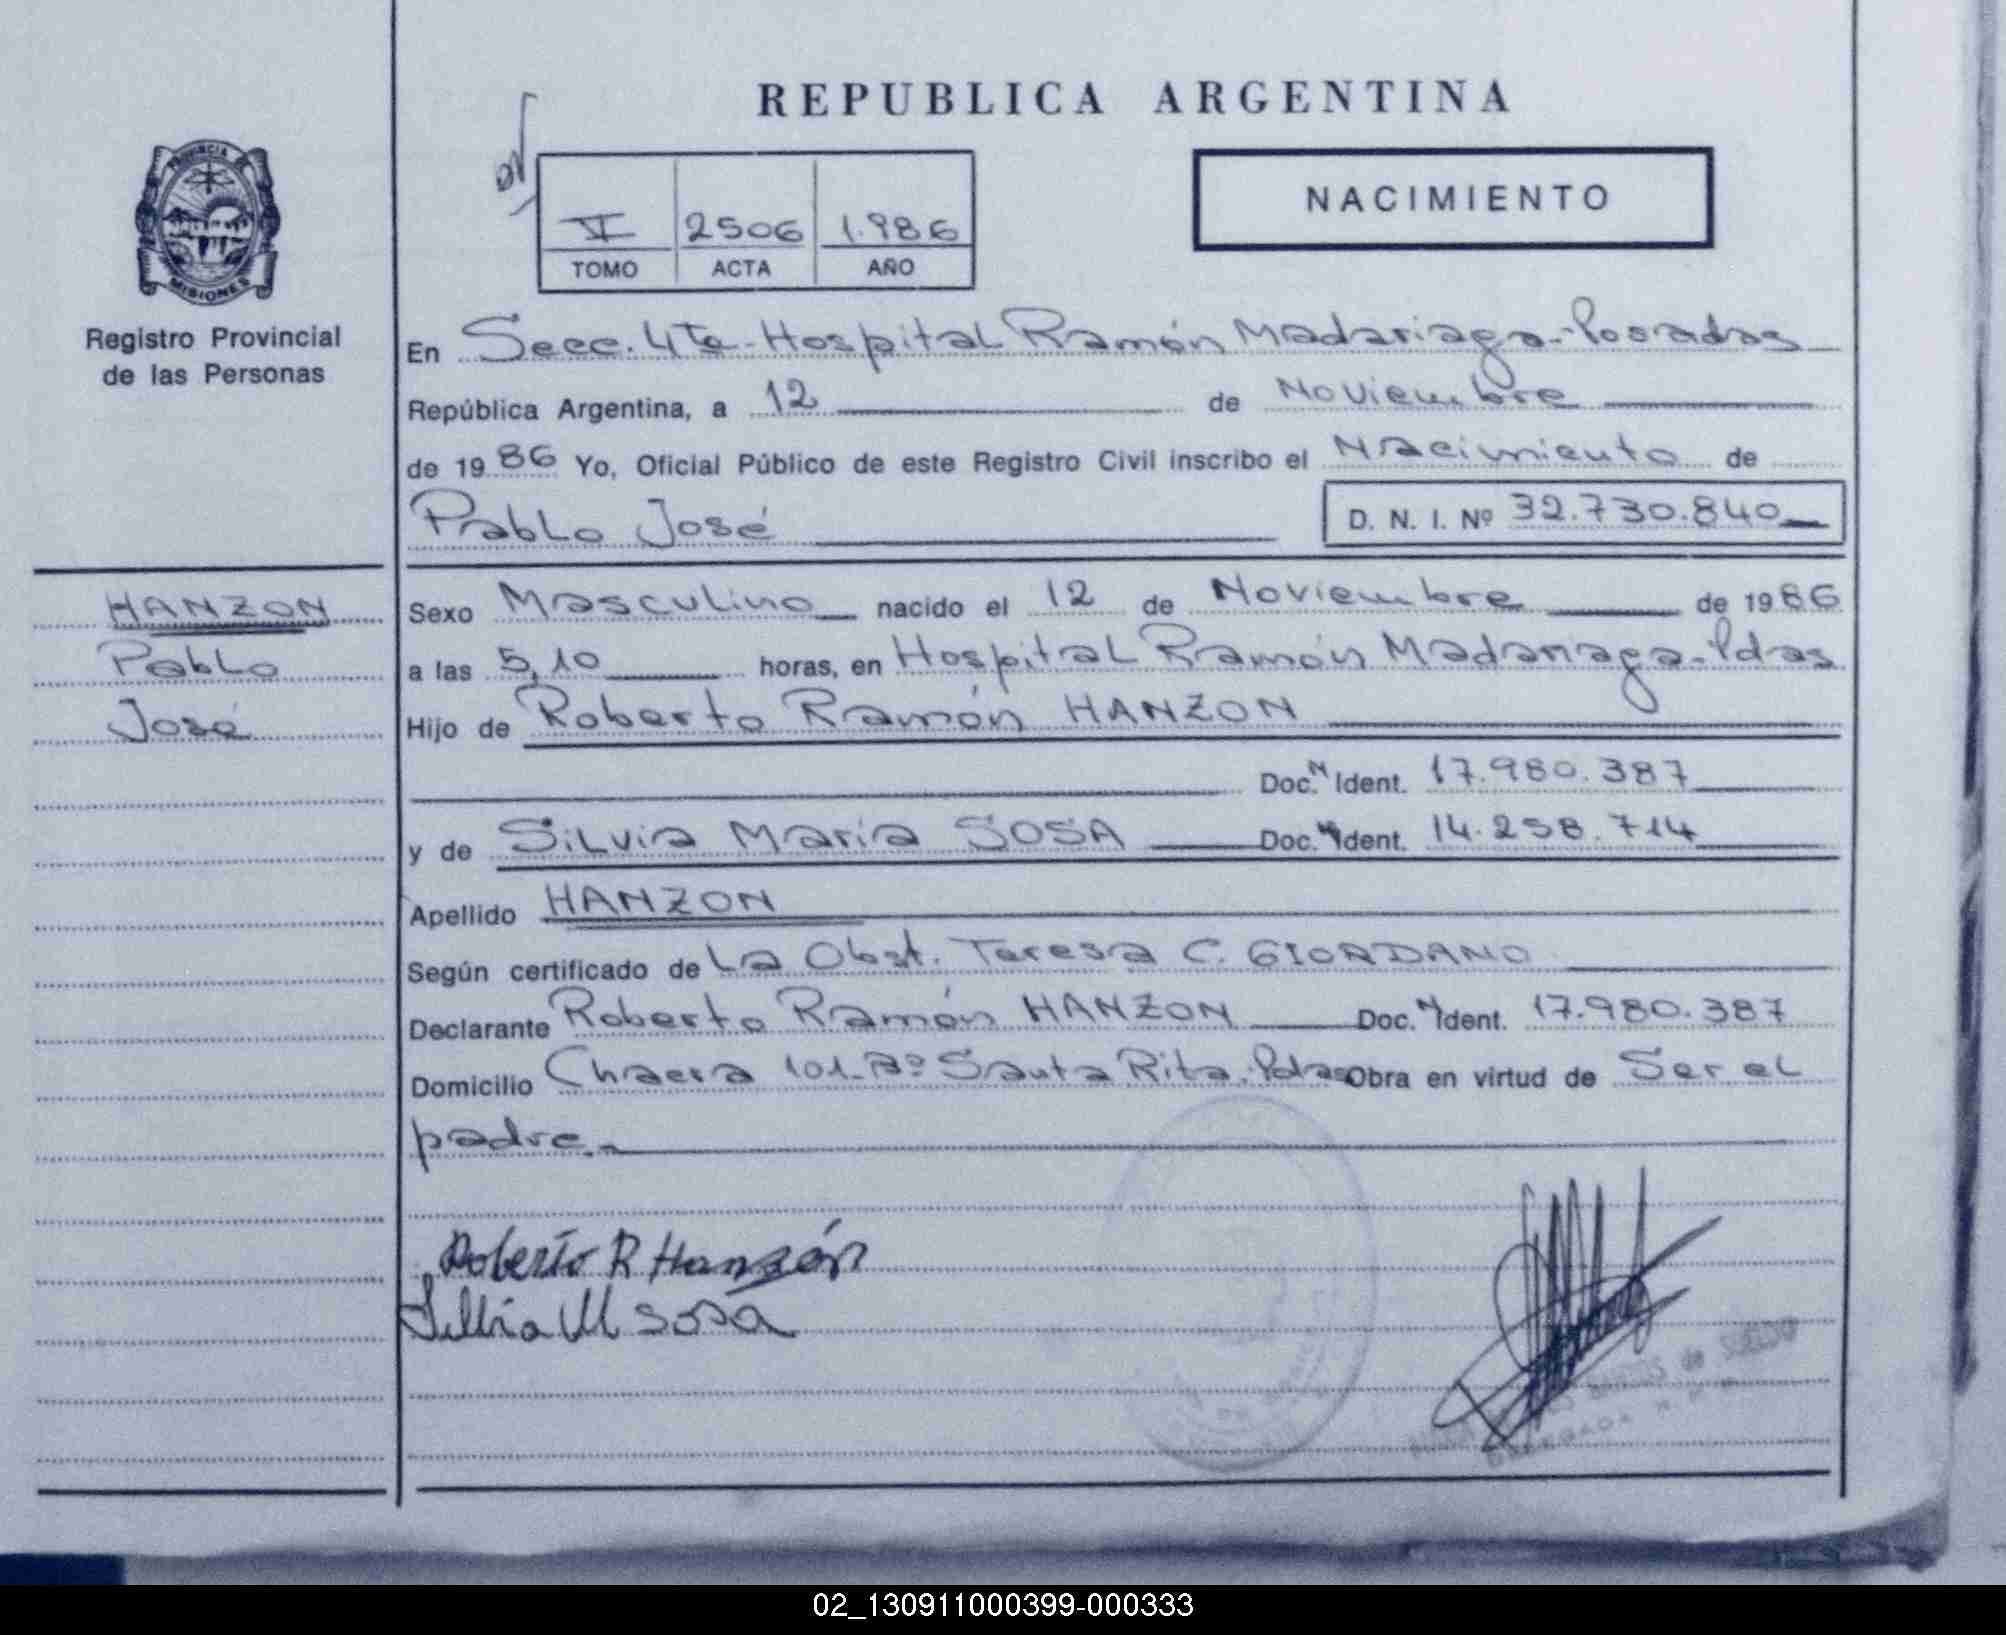 REPUBLICA ARGENTINA
NACIMIENTO
V 2506 1.986
TOMO ACTA AÑO
PROVINCIA DE
MISIONES
Registro Provincial
de las Personas
En Secc. 4ta - Hospital Ramón Madariaga - Posadas
República Argentina, a 12 de Noviembre
de 1986 Yo, Oficial Público de este Registro Civil inscribo el Nacimiento de
Pablo José D. N. I. Nº 32.730.840
HANZON
Pablo
José
Sexo Masculino nacido el 12 de Noviembre de 1986
a las 5,10 horas, en Hospital Ramón Madariaga - Pdas
Hijo de Roberto Ramón HANZON
Doc. N Ident. 17.980.387
y de Silvia María SOSA Doc. N Ident. 14.258.714
Apellido HANZON
Según certificado de La Obst. Teresa C. GIORDANO
Declarante Roberto Ramón HANZON Doc. N Ident. 17.980.387
Domicilio Chacra 101 - Bº Santa Rita. Pdas Obra en virtud de Ser el
padre.-
Roberto R Hanzón
Silvia M Sosa
de SUELDO
02_130911000399-000333